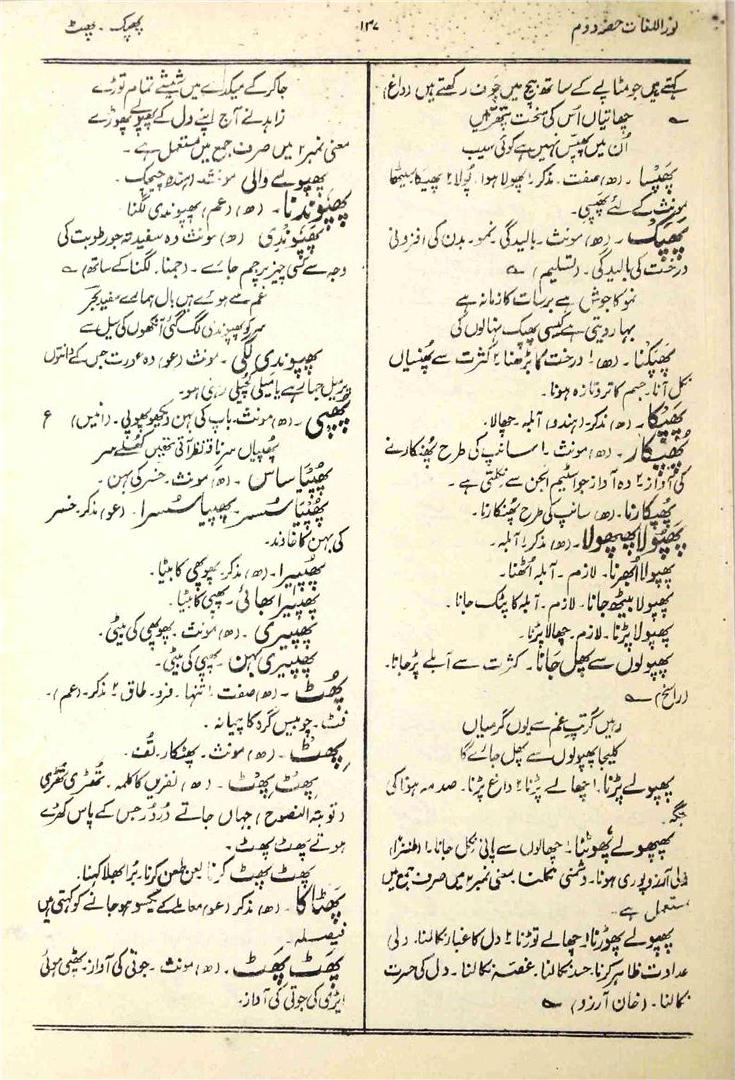 نور اللغات حصہ دوم
۱۳۷
پھپک ۔ پھٹ
کہتے ہیں جو مٹاپے کے ساتھ بیچ میں جوف رکھتے ہیں (داغ)
چھاتیاں اُس کی سخت پتھر ہیں
اُن میں پھپس نہیں ہے کوئی سیب
پھپسا ۔ (ھ) صفت ۔ مذکر ۱ پھولا ہوا ۔ پولا ۲ پھیکا سیٹھا
مونث کے لئے پھپسی۔
پھپک ۔ (ھ) مونث ۔ بالیدگی ۔ نمو ۔ بدن کی افزونی
درخت کی بالیدگی ۔ (تسلیم)
نمو کا جوش ہے برسات کا زمانہ ہے
بہار دیتی ہے کیسی پھپک نہالوں کی
پھپکنا ۔ (ھ) ۱ درخت کا بڑھنا ۲ کثرت سے پھنسیاں
نکل آنا ۔ جسم کا تر و تازہ ہونا۔
پھپکا ۔ (ھ) مذکر ۔ (ہندو) آبلہ ۔ چھالا۔
پھپکار ۔ (ھ) مونث ۔ ۱ سانپ کی طرح پھنکارنے
کی آواز ۲ وہ آواز جو اسٹیم انجن سے نکلتی ہے ۔
پھپکارنا ۔ (ھ) سانپ کی طرح پھنکارنا۔
پھپولا پھپھولا ۔ (ھ) مذکر ۱ آبلہ ۔
پھپولا اُبھرنا ۔ لازم ۔ آبلہ اُٹھنا۔
پھپولا بیٹھ جانا ۔ لازم ۔ آبلہ کا پٹک جانا ۔
پھپولا پڑنا ۔ لازم ۔ چھالا پڑنا ۔
پھپولوں سے پھل جانا ۔ کثرت سے آبلے پڑجانا۔
(راسخ)
رہیں گر تپ غم سے یوں گرمیاں
کلیجا پھپولوں سے پھل جائے گا
پھپولے پڑنا ۔ ۱ چھالے پڑنا ۲ داغ پڑنا ۔ صدمہ ہونا کی
جگہ
پھپھولے پھوٹنا ۔ ۱ چھالوں سے پانی نکل جانا ۔ ۲ (طنزاً)
دلی آرزو پوری ہونا ۔ دشمنی نکلنا ۔ بمعنی نمبر ۲ میں صرف جمع میں
مستعمل ہے ۔
پھپولے پھوڑنا ۔ ۱ چھالے توڑنا ۲ دل کا غبار نکالنا ۔ دلی
عداوت ظاہر کرنا ۔ حسد نکالنا ۔ غصہ نکالنا ۔ دل کی حسرت
نکالنا ۔ (خان آرزو)
جا کر گے میکدے میں شیشے تمام توڑے
زاہد نے آج اپنے دل کے پھپولے پھوڑے
معنی نمبر ۲ میں صرف جمع میں مستعمل ہے ۔
پھپولے والی مونث ۔ (ہندو) چیچک ۔
پھپوندنا ۔ (ھ) (عم) پھپوندی لگنا ۔
پھپوندی (ھ) مونث وہ سفید تہ جو رطوبت کی
وجہ سے کسی چیز پر جم جائے ۔ (جمنا ۔ لگنا کے ساتھ)
غم سے ہوئے ہیں بال ہمارے سفید بحر
سر کو پھپوندی لگ گئی آنکھوں کی سیل سے
پھپوندی لگی ۔ مونث (عو) وہ عورت جس کے دانتوں
پر میل جما رہے یا میلی کچیلی رہتی ہو۔
پھپی ۔ (ھ) مونث ۔ باپ کی بہن دیکھو پھوپی ۔ (انیس) ع
پھپیاں سر ناقہ نظر آتی تھیں کھلے سر
پھپیا ساس ۔ (ھ) مونث ۔ خسر کی بہن ۔
پھپیا سسر ۔ پھپیا سسرا ۔ (عو) مذکر ۔ خسر
کی بہن کا خاوند۔
پھپیرا ۔ (ھ) مذکر ۔ پھوپھی کا بیٹا ۔
پھپیرا بھائی ۔ پھپی کا بیٹا۔
پھپیری ۔ (ھ) مونث ۔ پھوپھی کی بیٹی ۔
پھپیری بہن ۔ پھپی کی بیٹی ۔
پھٹ ۔ (ھ) صفت ۔ ۱ تنہا ۔ فرد ۔ طاق ۲ مذکر ۔ (عم) ۔
فٹ ۔ چوبیس گرہ کا پیمانہ ۔
پھٹ ۔ (ھ) مونث ۔ پھٹکار ۔ تُف۔
پھٹ پھٹ ۔ (ھ) نفریں کا کلمہ ۔ تھڑی تھڑی
(توبۃ النصوح) جہاں جاتے دُر دُر جس کے پاس کھڑے
ہوتے پھٹ پھٹ ۔
پھٹ پھٹ کرنا لعن طعن کرنا ۔ بُرا بھلا کہنا ۔
پھٹاکا ۔ (ھ) مذکر (عو) معاملے کے یکسو ہو جانے کو کہتی ہیں
فیصلہ ۔
پھٹ پھٹ ۔ (ھ) مونث ۔ جوتی کی آواز ۔ پھٹی ہوئی
ایڑی کی جوتی کی آواز۔